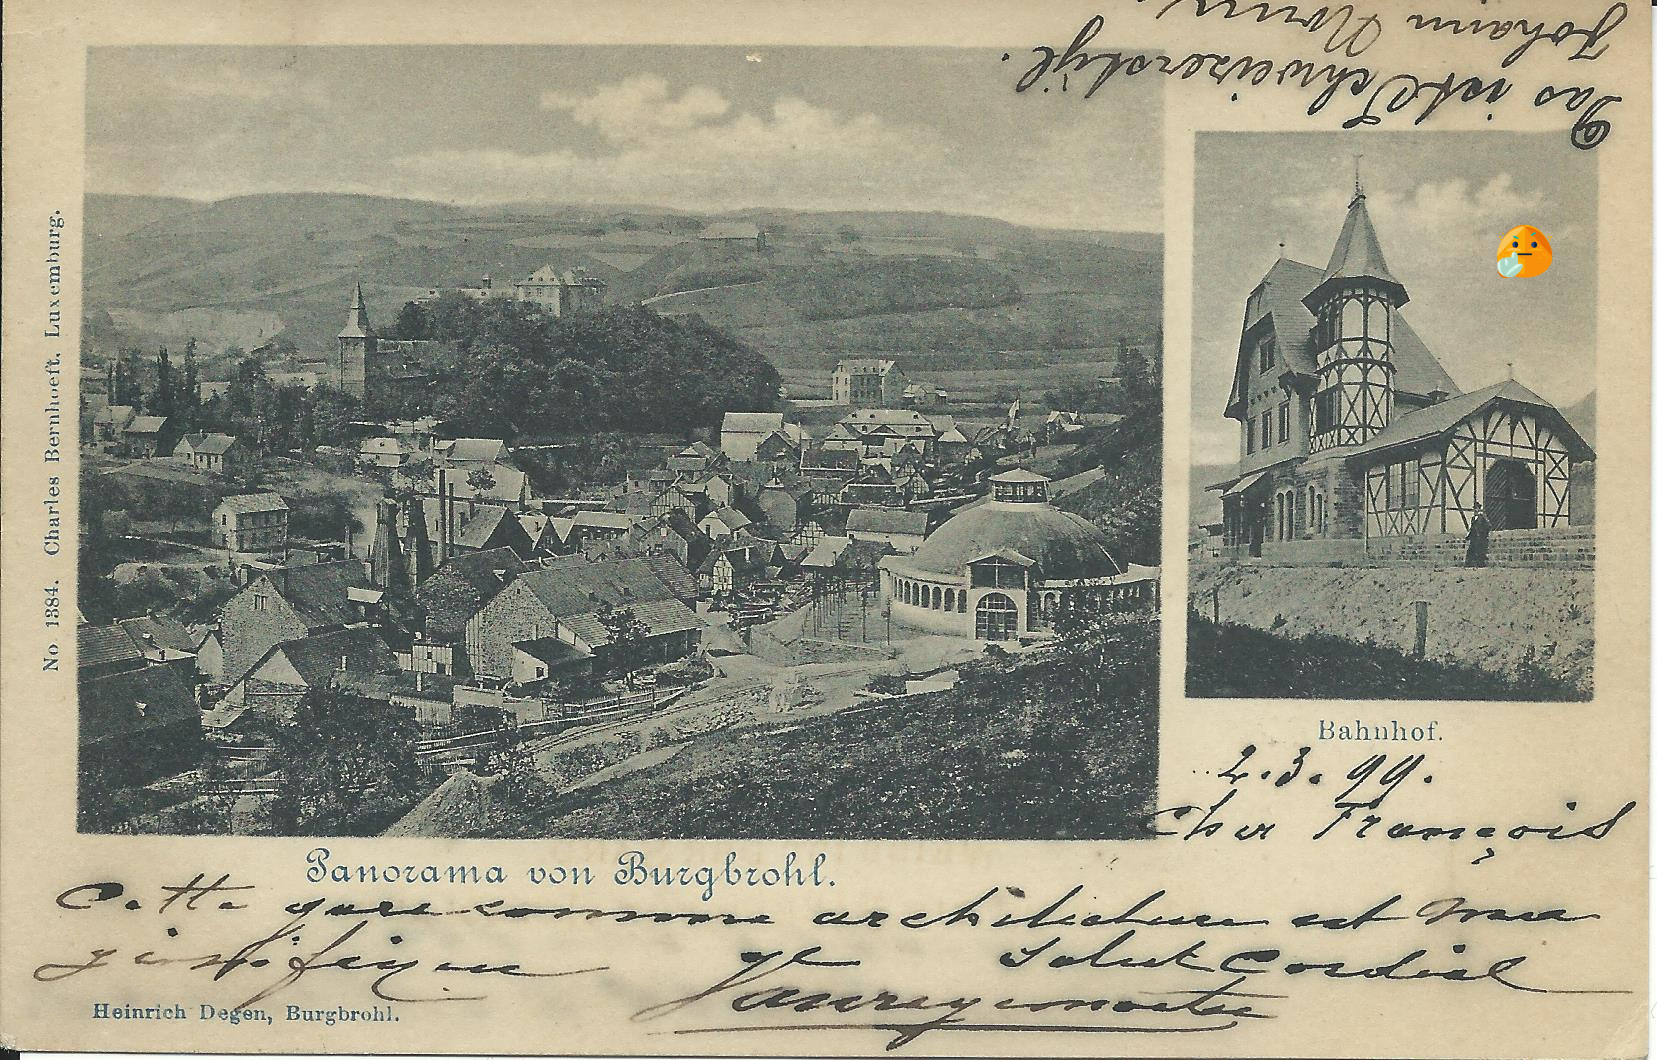 Das ist Schweizerstyl.
Johann
No 1384. Charles Bernhoeft, Luxemburg.
Bahnhof.
2.3.99.
Cher François
Panorama von Burgbrohl.
Cette gare comme architecture est ma
gnifique
Salut Cordial
Heinrich Degen, Burgbrohl.